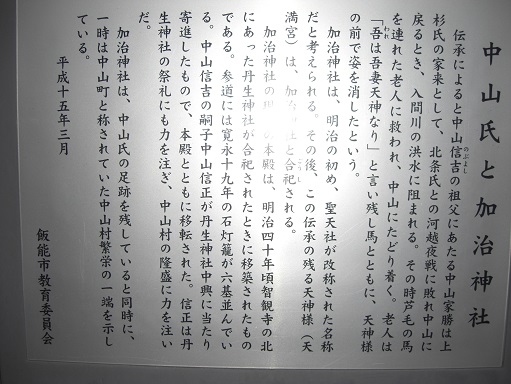 中山氏と加治神社
伝承によると中山信吉の祖父にあたる中山家勝は上
のぶよし
杉氏の家来として、北条氏との河越夜戦に敗れ中山に
戻るとき、入間川の洪水に阻まれる。その時芦毛の馬
を連れた老人に救われ、中山にたどり着く。老人は
われ
「吾は吾妻天神なり」と言い残し馬とともに、天神様
の前で姿を消したという。
加治神社は、明治の初め、聖天社が改称された名称
だと考えられる。その後、この伝承の残る天神様(天
満宮)は、加治神社と合祀される。
加治神社の現の本殿は、明治四十年頃智観寺の北
にあった丹生神社が合祀されたときに移築されたもの
である。参道には寛永十九年の石灯籠が六基並んでい
る。中山信吉の嗣子中山信正が丹生神社中興に当たり
寄進したもので、本殿とともに移転された。信正は丹
生神社の祭礼にも力を注ぎ、中山村の隆盛に力を注い
だ。
加治神社は、中山氏の足跡を残していると同時に、
一時は中山町と称されていた中山村繁栄の一端を示し
ている。
平成十五年三月
飯能市教育委員会